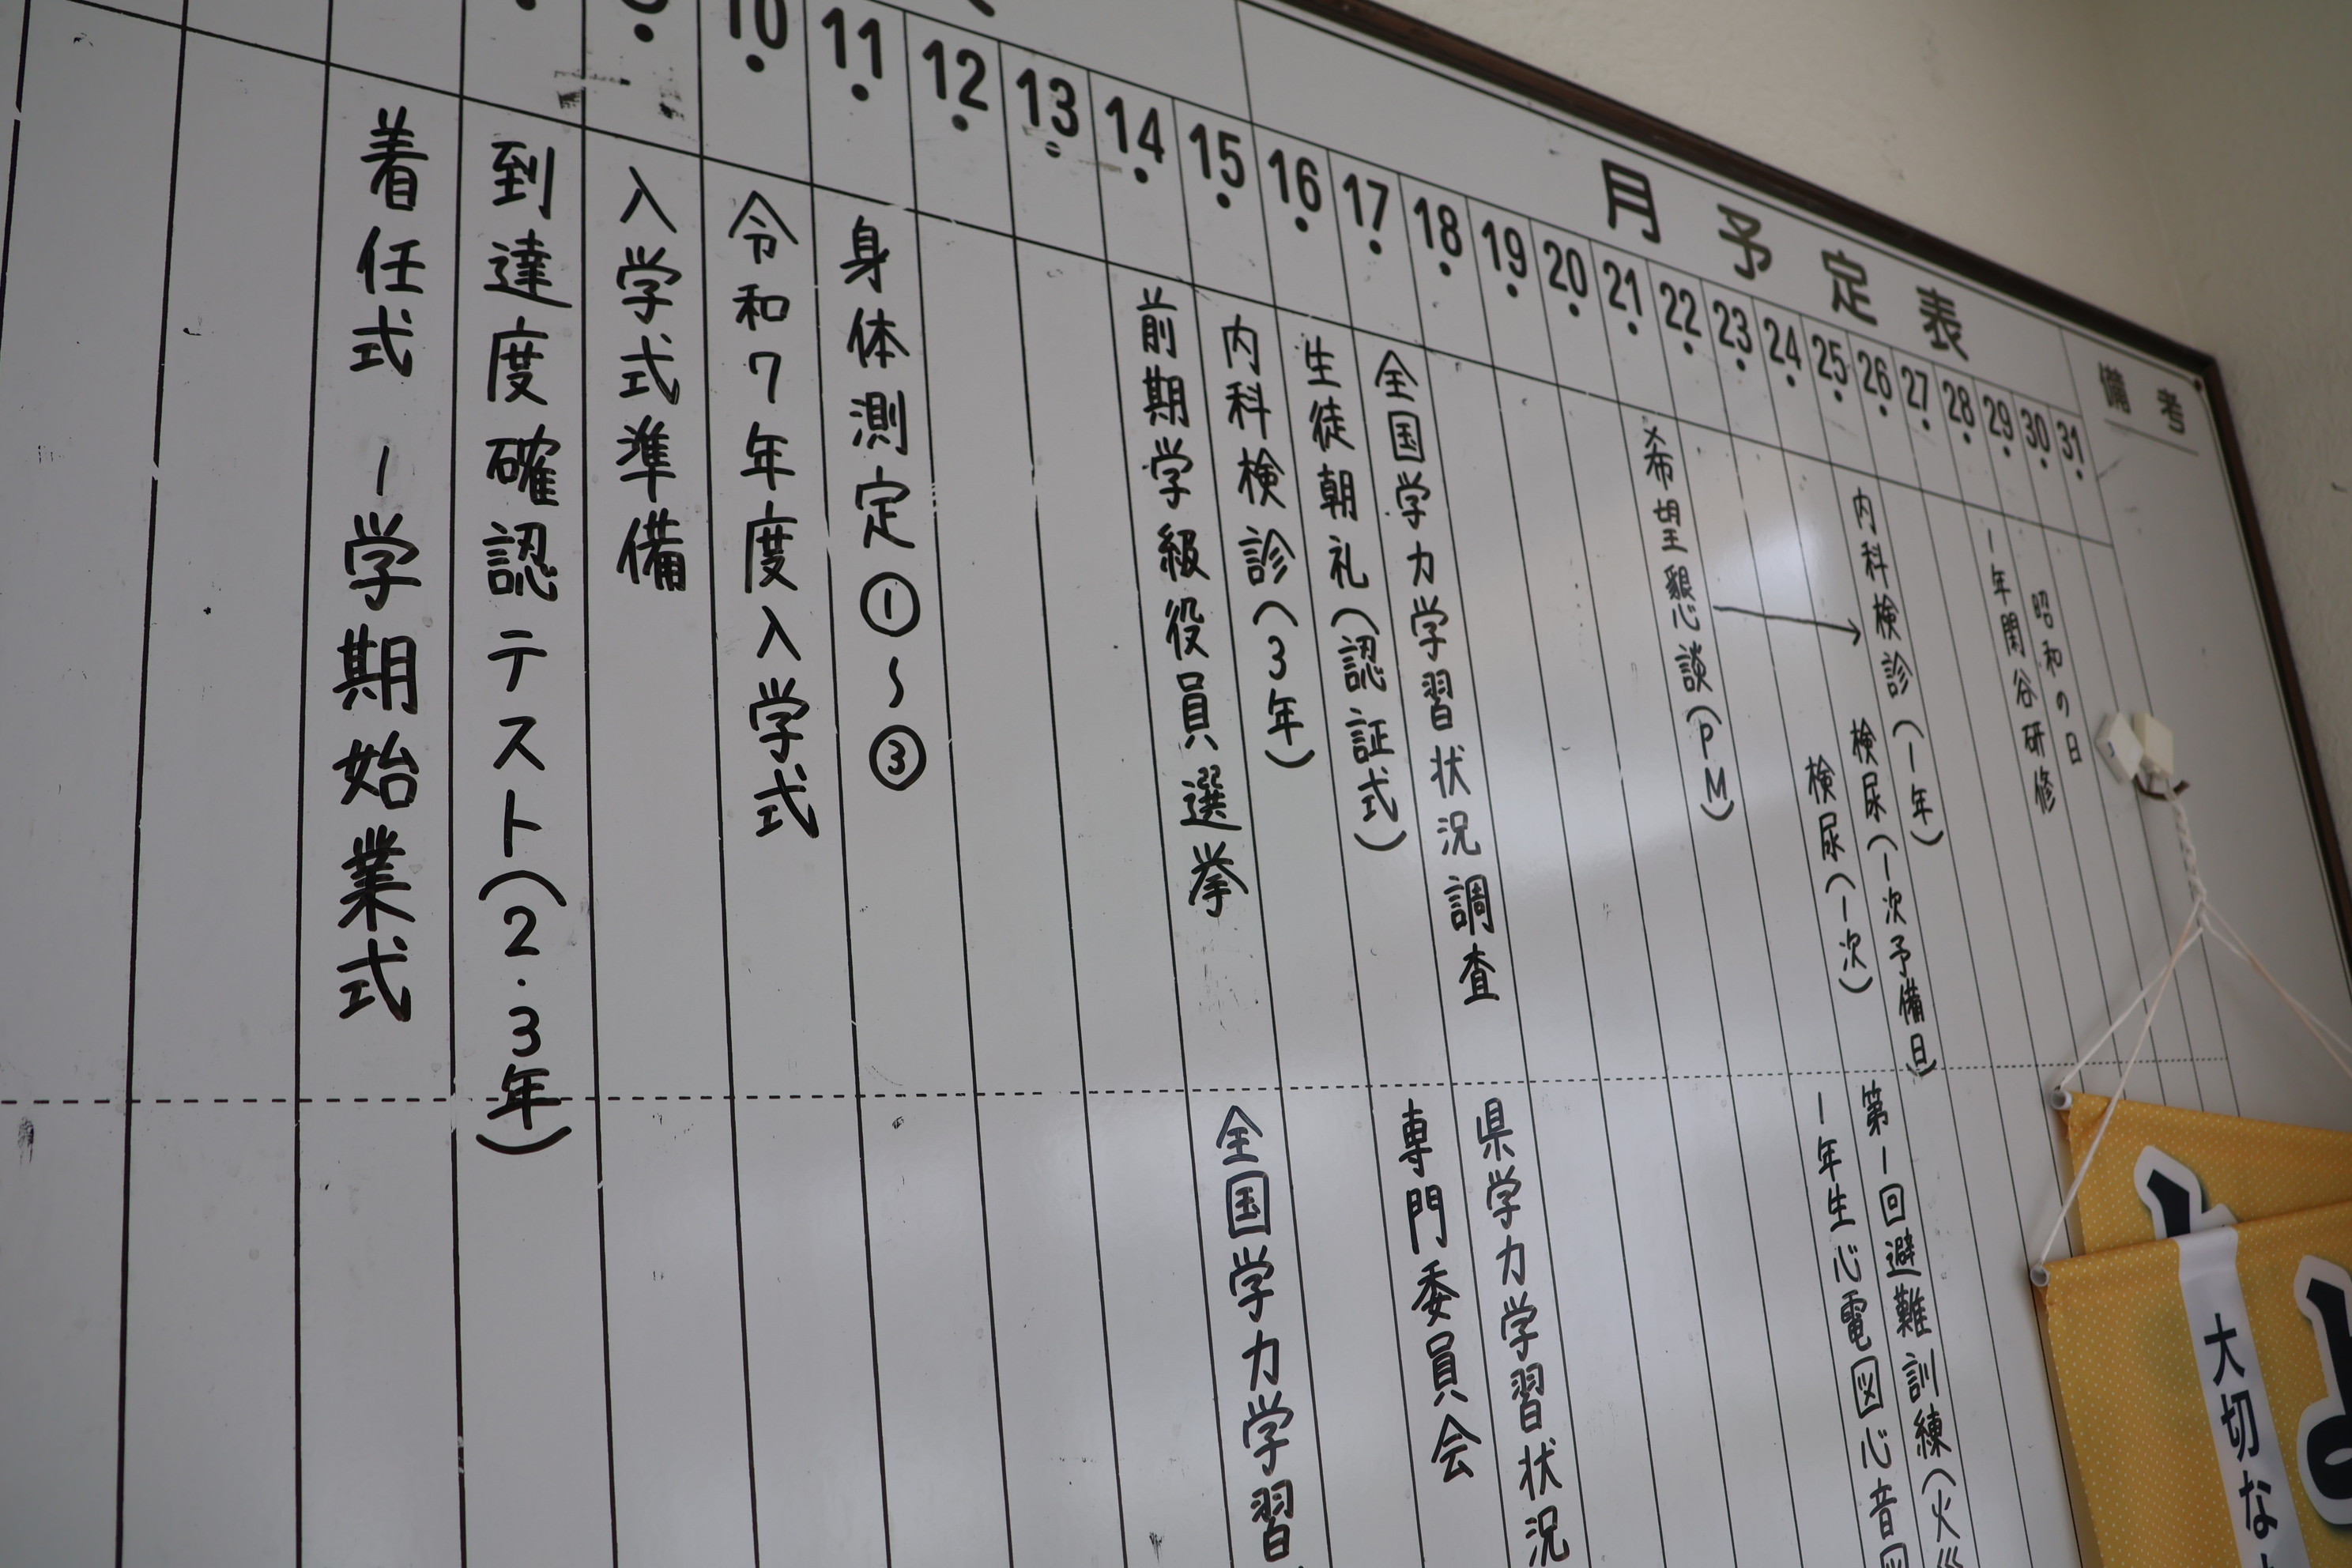 月予定表
備考
10
11
12
13
14
15
16
17
18
19
20
21
22
23
24
25
26
27
28
29
30
31
着任式 一学期始業式
到達度確認テスト(2.3年)
入学式準備
令和7年度入学式
身体測定①~③
前期学級役員選挙
内科検診(3年)
生徒朝礼(認証式)
全国学力学習状況調査
希望懇談(PM)
検尿(一次)
検尿(一次予備日)
内科検診(一年)
一年閑谷研修
昭和の日
全国学力学習
専門委員会
県学力学習状況
一年生心電図心音図
第一回避難訓練(火災
大切な